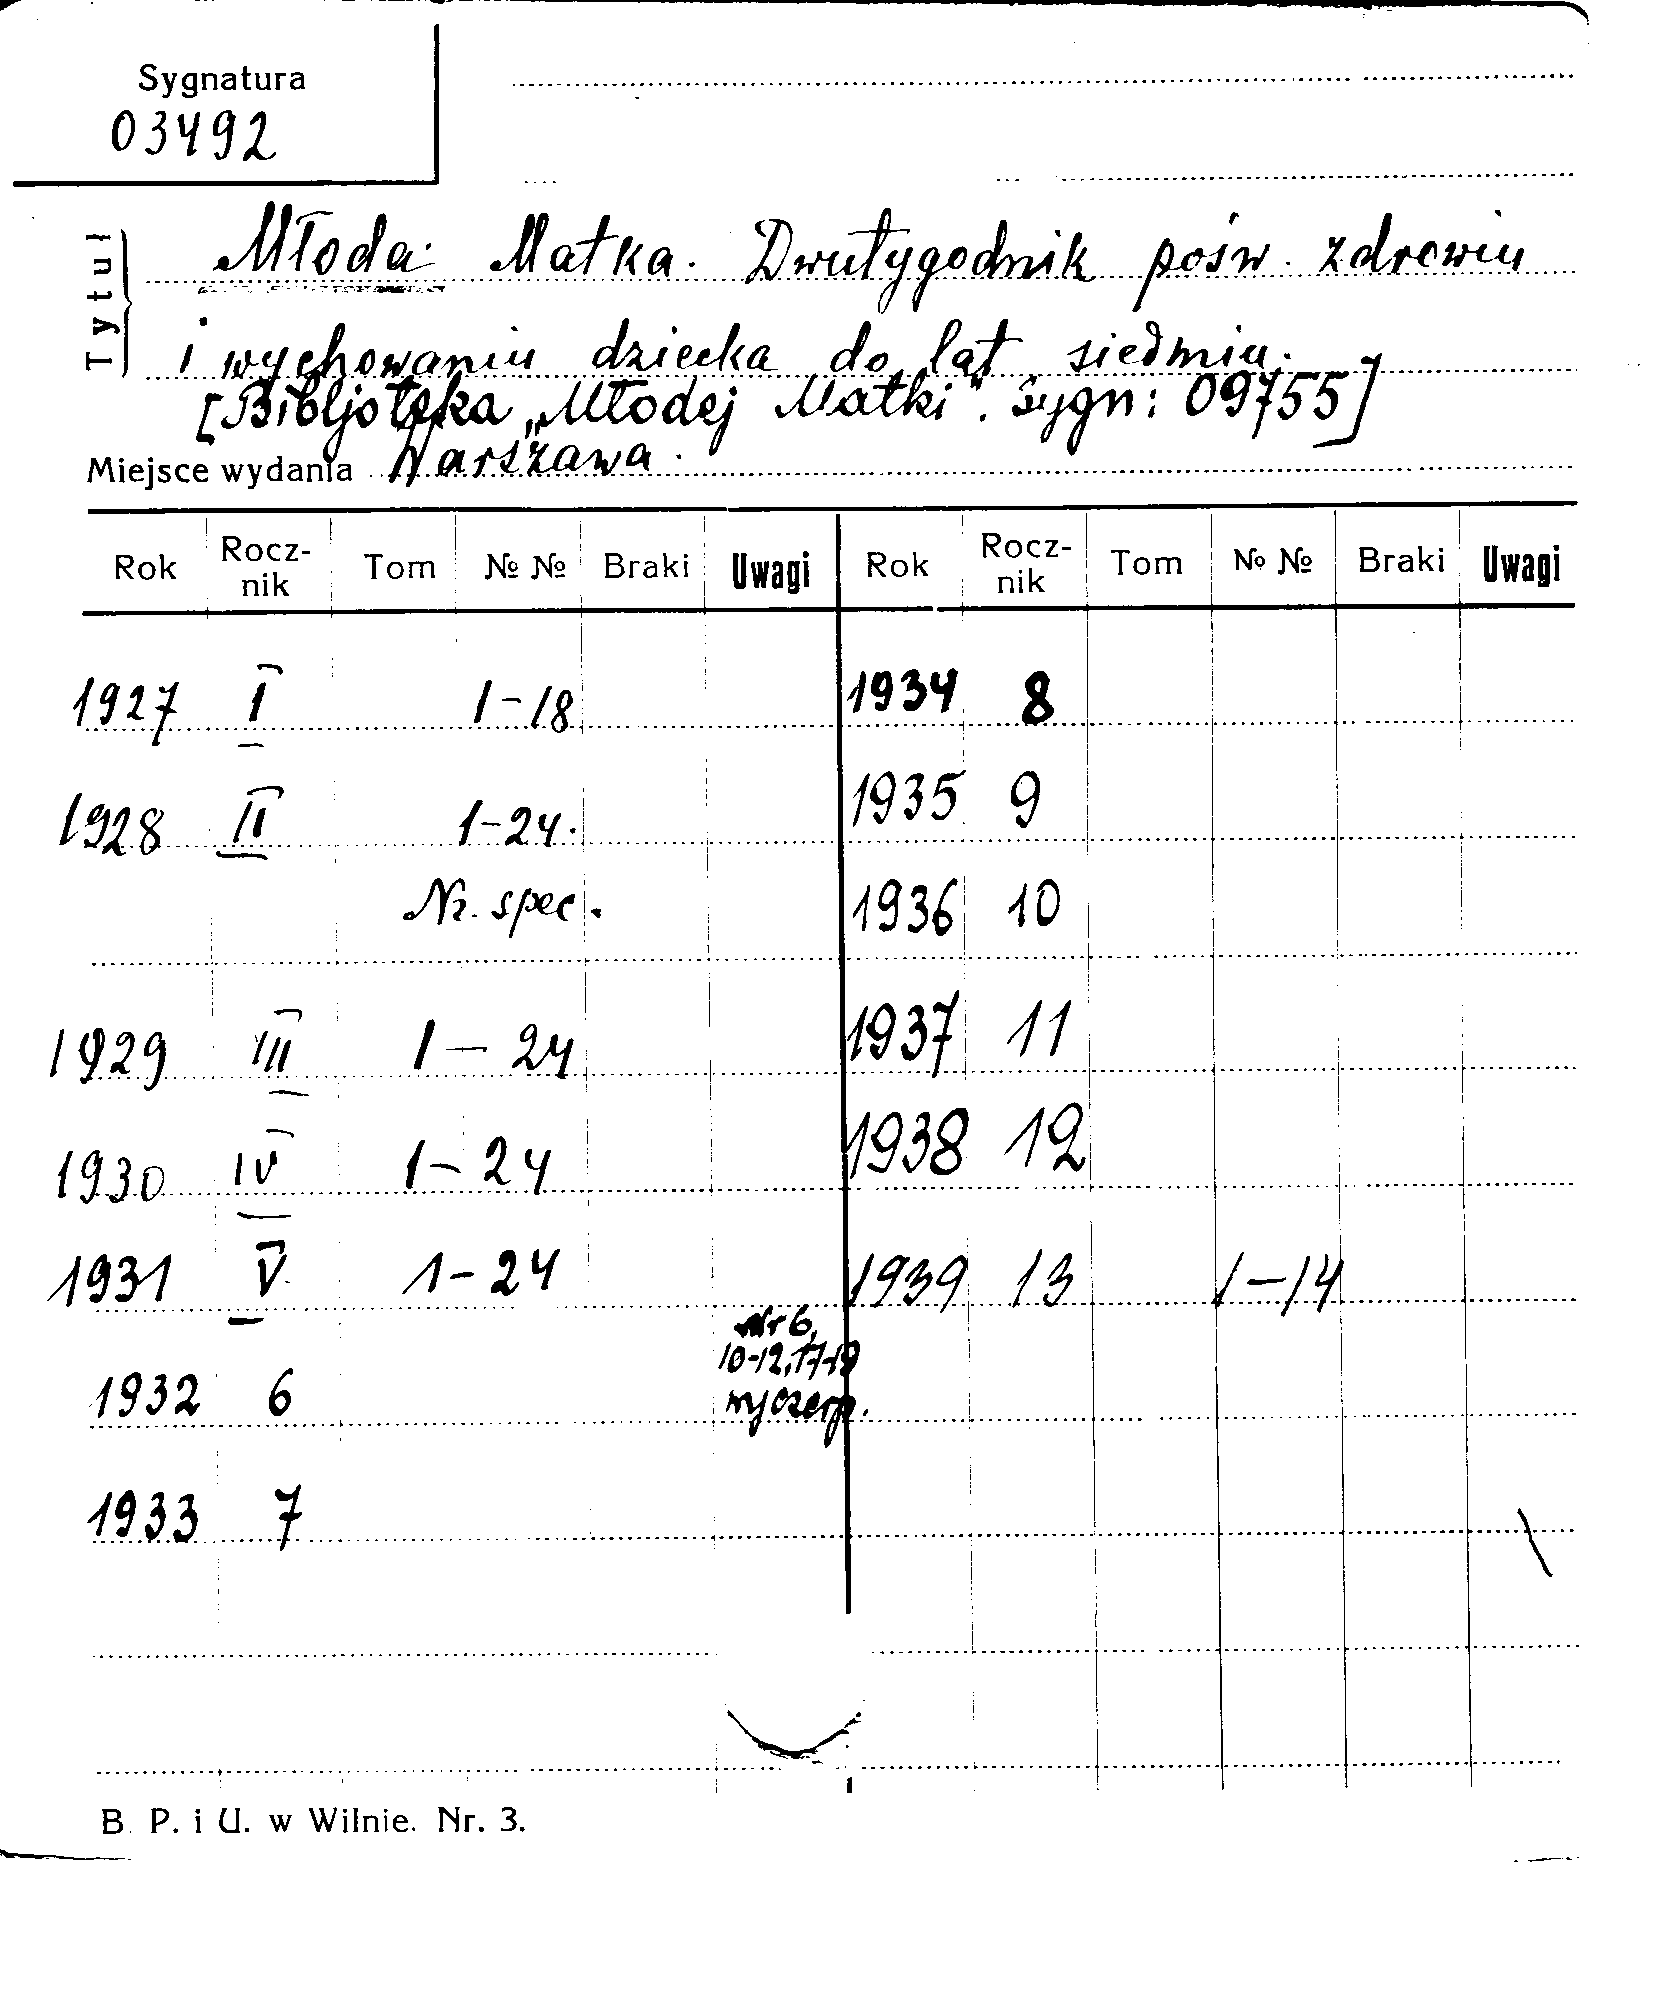 Sygnatura
03492
Tytuł
Młoda Matka. Dwutygodnik pośw. zdrowiu
i wychowaniu dziecka do lat siedmiu.
[Bibljoteka „Młodej Matki". Sygn: 09755]
Miejsce wydania Warszawa.
Rok Rocz-nik Tom № № Braki Uwagi Rok Rocz-nik Tom № № Braki Uwagi
1927 I 1-18 1934 8
1928 II 1-24. 1935 9
Nr. spec. 1936 10
1929 III 1-24 1937 11
1930 IV 1-24 1938 12
1931 V 1-24 1939 13 1-14
Nr 6,
10-12, 17-19
1932 6 wyczerp.
1933 7
B. P. i U. w Wilnie. Nr. 3.